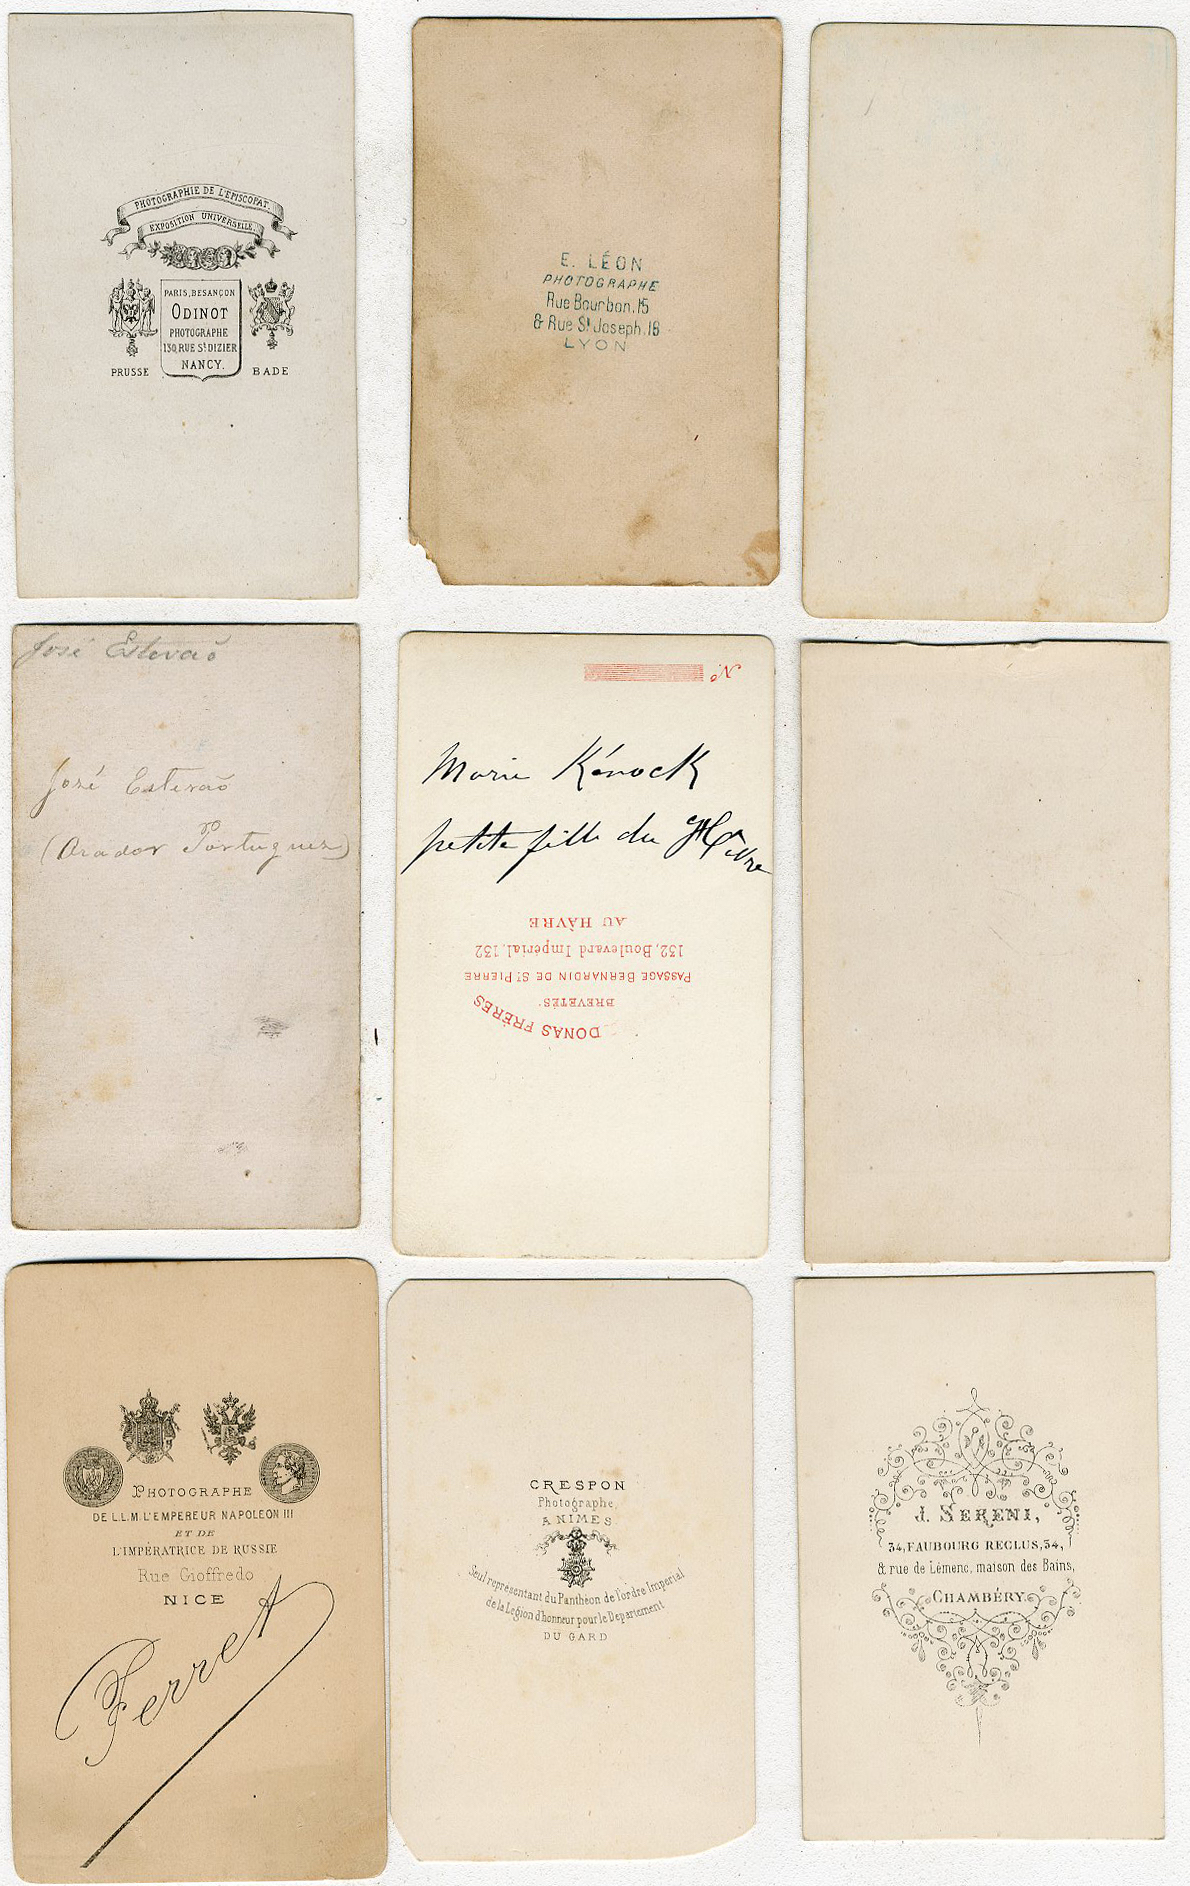 PHOTOGRAPHIE DE L'EPISCOPAT.
EXPOSITION UNIVERSELLE.
PARIS, BESANÇON
ODINOT
PHOTOGRAPHE
130, RUE St DIZIER
NANCY.
PRUSSE
BADE
E. LÉON
PHOTOGRAPHE
Rue Bourbon, 15
& Rue St Joseph, 18
LYON
José Estevaõ
José Estevaõ
(Orador Portuguez)
No
Marie Kénock
petite fille du Hâvre
DONAS FRÈRES
BREVETÉS
PASSAGE BERNARDIN DE St PIERRE
132, Boulevard Impérial, 132
AU HÂVRE
PHOTOGRAPHE
DE L.L.M. L'EMPEREUR NAPOLEON III
ET DE
L'IMPÉRATRICE DE RUSSIE
Rue Gioffredo
NICE
Ferret
CRESPON
Photographe,
A NIMES
Seul représentant du Panthéon de l'ordre Imperial
de la Légion d'honneur pour le Département
DU GARD
J. SERENI,
34, FAUBOURG RECLUS, 34,
& rue de Lémenc, maison des Bains,
CHAMBÉRY.